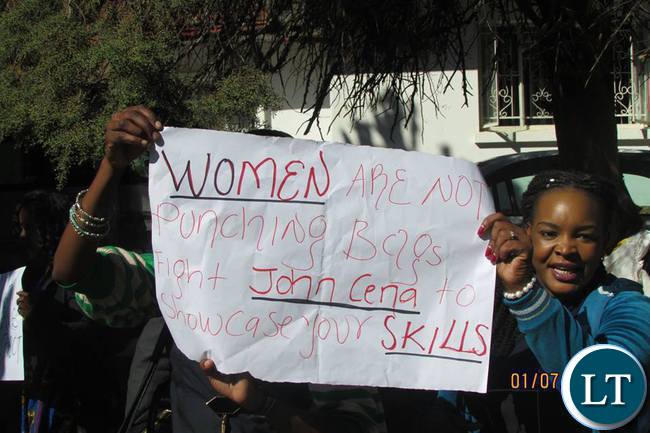 WOMEN ARE NOT
Punching Bags
Fight John Cena to
Showcase your SKILLS
01/07
LT